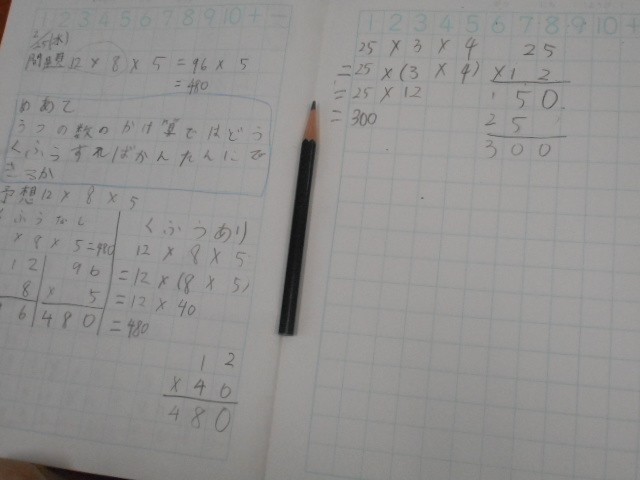 1 2 3 4 5 6 7 8 9 10 + =
2/25(水)
12 × 8 × 5 = 96 × 5
= 480
めあて
3つの数のかけ算ではどう
くふうすればかんたんにで
きるか
予想 12 × 8 × 5
くふうなし
× 8 × 5 = 480
1 2
8
9 6
9 6
× 5
4 8 0
くふうあり
12 × 8 × 5
= 12 × (8 × 5)
= 12 × 40
= 480
1 2
× 4 0
4 8 0
1 2 3 4 5 6 7 8 9 10 +
25 × 3 × 4
= 25 × (3 × 4)
= 25 × 12
= 300
2 5
× 1 2
5 0
2 5
3 0 0